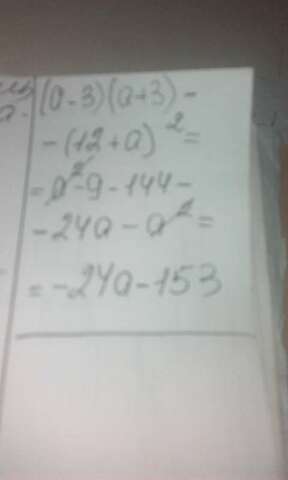 (a-3)(a+3) -
- (12+a)² =
= a² - 9 - 144 -
- 24a - a² =
= -24a - 153